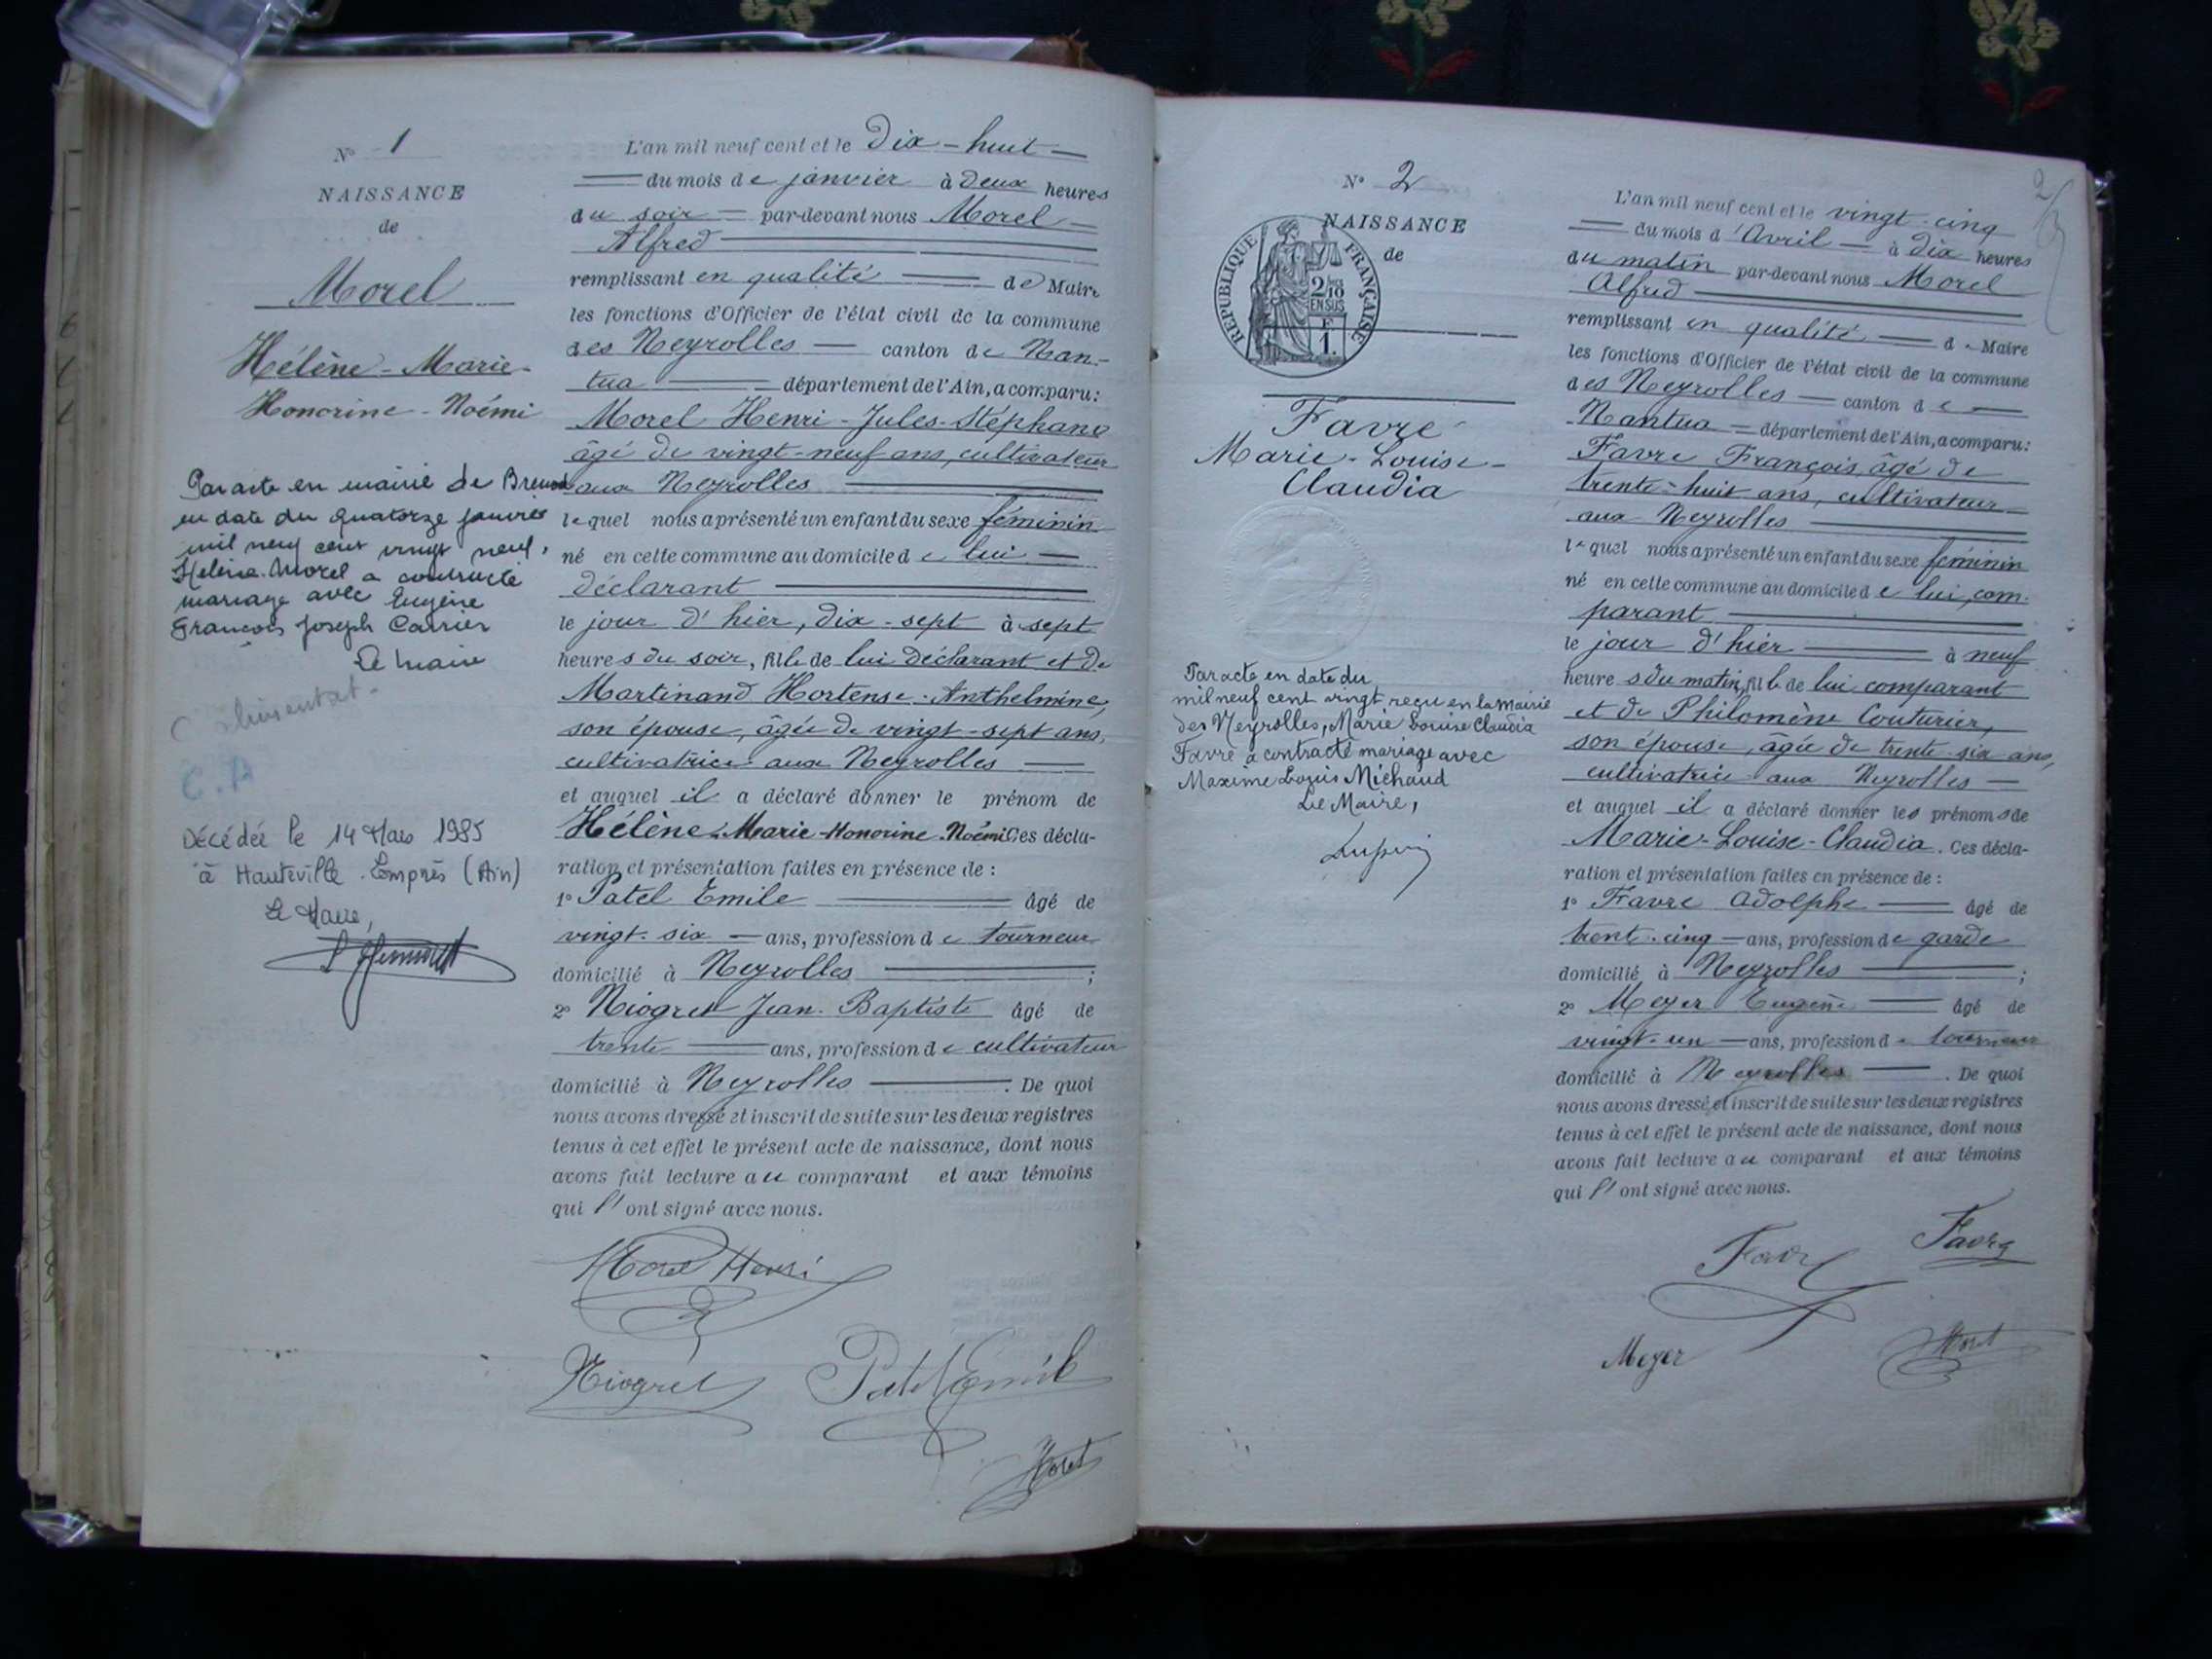 N° 1
NAISSANCE
de
Morel
Hélène-Marie-
Honorine-Noémi
Par acte en mairie de
en date du quatorze janvier
mil neuf cent vingt neuf,
Hélène Morel a contracté
mariage avec Eugène
François Joseph Carrier
Le Maire
C. A
Décédée le 14 Mars 1985
à Hauteville-Lompnès (Ain)
Le Maire,
L'an mil neuf cent et le Dix-huit
du mois de janvier à Deux heures
du soir par-devant nous Morel
Alfred
remplissant en qualité de Maire
les fonctions d'Officier de l'état civil de la commune
des Neyrolles canton de Nan-
tua département de l'Ain, a comparu:
Morel Henri-Jules-Stéphane
âgé de vingt-neuf ans, cultivateur
aux Neyrolles
lequel nous a présenté un enfant du sexe féminin
né en cette commune au domicile de lui
déclarant
le jour d'hier, dix-sept à sept
heures du soir, fille de lui déclarant et de
Martinand Hortense-Anthelmine,
son épouse, âgée de vingt-sept ans,
cultivatrice aux Neyrolles
et auquel il a déclaré donner le prénom de
Hélène-Marie-Honorine-Noémi Ces décla-
ration et présentation faites en présence de :
1° Patel Emile âgé de
vingt-six ans, profession de tourneur
domicilié à Neyrolles ;
2° Niogret Jean-Baptiste âgé de
trente ans, profession de cultivateur
domicilié à Neyrolles . De quoi
nous avons dressé et inscrit de suite sur les deux registres
tenus à cet effet le présent acte de naissance, dont nous
avons fait lecture au comparant et aux témoins
qui l'ont signé avec nous.
Morel Henri
Niogret Patel Emile
Morel
2
N° 2
NAISSANCE
de
REPUBLIQUE FRANÇAISE
2/10
EN SUS
1.
Favre
Marie-Louise-
Claudia
Par acte en date du
mil neuf cent vingt reçu en la mairie
des Neyrolles, Marie Louise Claudia
Favre a contracté mariage avec
Maxime Louis Michaud
Le Maire,
L'an mil neuf cent et le vingt-cinq
du mois d'Avril à dix heures
du matin par-devant nous Morel
Alfred
remplissant en qualité de Maire
les fonctions d'Officier de l'état civil de la commune
des Neyrolles canton de
Nantua département de l'Ain, a comparu:
Favre François, âgé de
trente-huit ans, cultivateur
aux Neyrolles
lequel nous a présenté un enfant du sexe féminin
né en cette commune au domicile de lui, com-
parant
le jour d'hier à neuf
heures du matin, fille de lui comparant
et de Philomène Couturier,
son épouse, âgée de trente-six ans,
cultivatrice aux Neyrolles
et auquel il a déclaré donner les prénoms de
Marie-Louise-Claudia. Ces décla-
ration et présentation faites en présence de :
1° Favre Adolphe âgé de
trent-cinq ans, profession de garde
domicilié à Neyrolles ;
2° Meyer Eugène âgé de
vingt-un ans, profession de tourneur
domicilié à Neyrolles . De quoi
nous avons dressé et inscrit de suite sur les deux registres
tenus à cet effet le présent acte de naissance, dont nous
avons fait lecture au comparant et aux témoins
qui l'ont signé avec nous.
Favre Favre
Meyer Morel